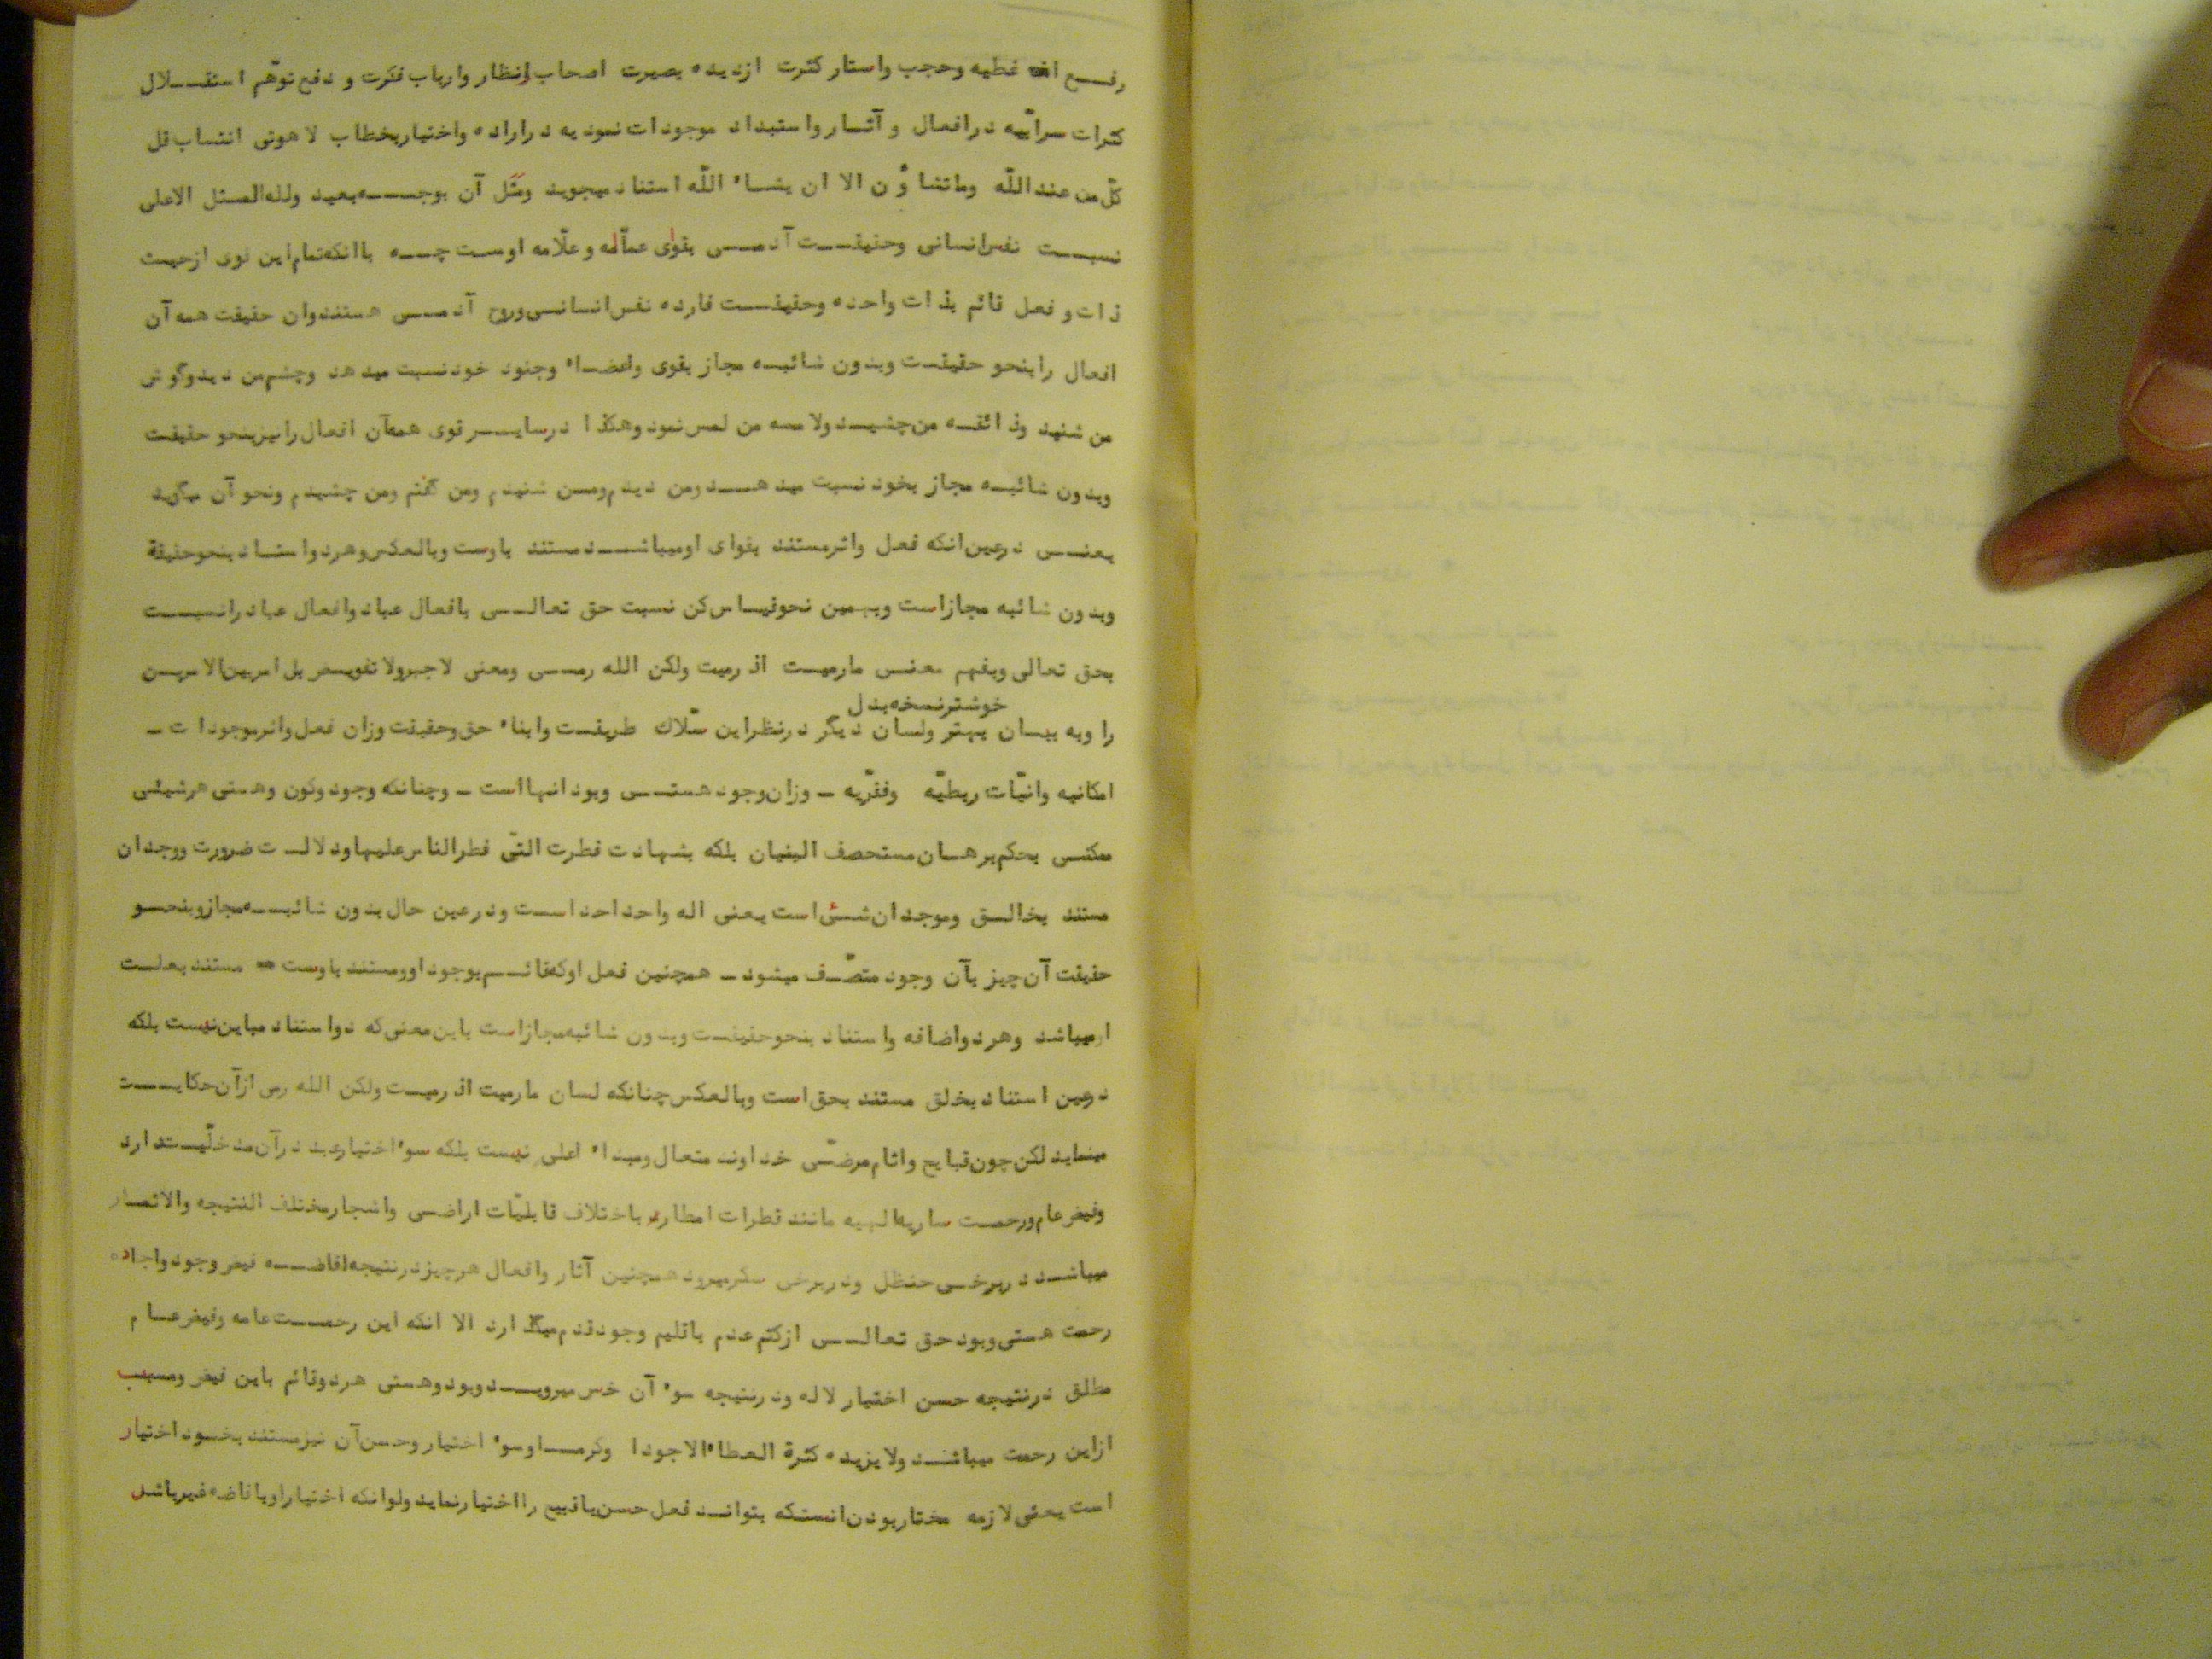 رفع اغطیه وحجب واستار کثرت ازدیده بصیرت اصحاب انظار وارباب فکرت و دفع توهّم استقلال
کثرات سرابیّه درافعال و آثار واستبداد موجودات نمودیه دراراده واختیاربخطاب لاهوتی انتساب قل
کلّ من عندالله وماتشاؤن الا ان یشاء الله استناد میجوید ومَثَل آن بوجه بعید ولله المثل الاعلی
نسبت نفس انسانی وحقیقت آدمی بقوای عمّاله و علّامه اوست چه باانکه تمام این قوی ازحیث
ذات و فعل قائم بذات واحده وحقیقت فارده نفس انسانی وروح آدمی هستند وان حقیقت همه آن
افعال رابنحو حقیقت وبدون شائبه مجاز بقوی واعضاء وجنود خود نسبت میدهد وچشم من دید وگوش
من شنید وذائقه من چشید ولامسه من لمس نمود وهکذا درسایر قوی همه آن افعال رانیزبنحو حقیقت
وبدون شائبه مجاز بخود نسبت میدهد ومن دیدم ومن شنیدم ومن گفتم ومن چشیدم ونحو آن میگوید
یعنی درعین انکه فعل واثرمستند بقوای اومیباشد مستند باوست وبالعکس وهردواستناد بنحوحقیقة
وبدون شائبه مجازاست وبهمین نحوقیاس کن نسبت حق تعالی بافعال عباد وافعال عباد رانسبت
بحق تعالی وبفهم معنی مارمیت اذ رمیت ولکن الله رمی ومعنی لاجبرولاتفویض بل امربین الامرین
خوشترنسخه بدل
را وبه بیان بهتر ولسان دیگر درنظراین سلّاک طریقت وابناء حق وحقیقت وزان فعل واثرموجودات ـ
امکانیه وانیّات ربطیّه وفقریّه ـ وزان وجود هستی وبود انهااست ـ وچنانکه وجود وکون وهستی هرشیئی
ممکنی بحکم برهان مستحصف البنیان بلکه بشهادت فطرت التّی فطرالناس علیها ودلالت ضرورت ووجدان
مستند بخالق وموجد ان شئی است یعنی اله واحد احد است ودرعین حال بدون شائبه مجازوبنحو
حقیقت آن چیز بآن وجود متصّف میشود ـ همچنین فعل اوکه قائم بوجود اوومستند باوست ـ مستند بعلت
اومیباشد وهردواضافه واستناد بنحوحقیقت وبدون شائبه مجازاست باین معنی که دواستناد مباین نیست بلکه
درعین استناد بخلق مستند بحق است وبالعکس چنانکه لسان مارمیت اذ رمیت ولکن الله رمی ازآن حکایت
مینماید لکن چون قبایح واثام مرضّی خداوند متعال ومبداء اعلی نیست بلکه سوء اختیارعبد درآن مدخلّیت دارد
وفیض عام ورحمت ساریه الهیه مانند قطرات امطار باختلاف قابلیّات اراضی واشجارمختلف النتیجه والاثمار
میباشد دربرخی حنظل ودربرخی سکرمیرود همچنین آثار وافعال هرچیزدرنتیجه افاضه فیض وجود واجاده
رحمت هستی وبود حق تعالی ازکتم عدم باقلیم وجود قدم میگذارد الا انکه این رحمت عامه وفیض عام
مطلق درنتیجه حسن اختیار لاله ودرنتیجه سوء آن خس میروید وبود وهستی هردوقائم باین فیض ومسبب
ازاین رحمت میباشند ولایزیده کثرة العطاء الاجودا وکرما وسوء اختیار وحسن آن نیزمستند بخود اختیار
است یعنی لازمه مختاربودن انستکه بتواند فعل حسن یاقبیح رااختیارنماید ولوانکه اختیاراوبافاضه غیرباشد